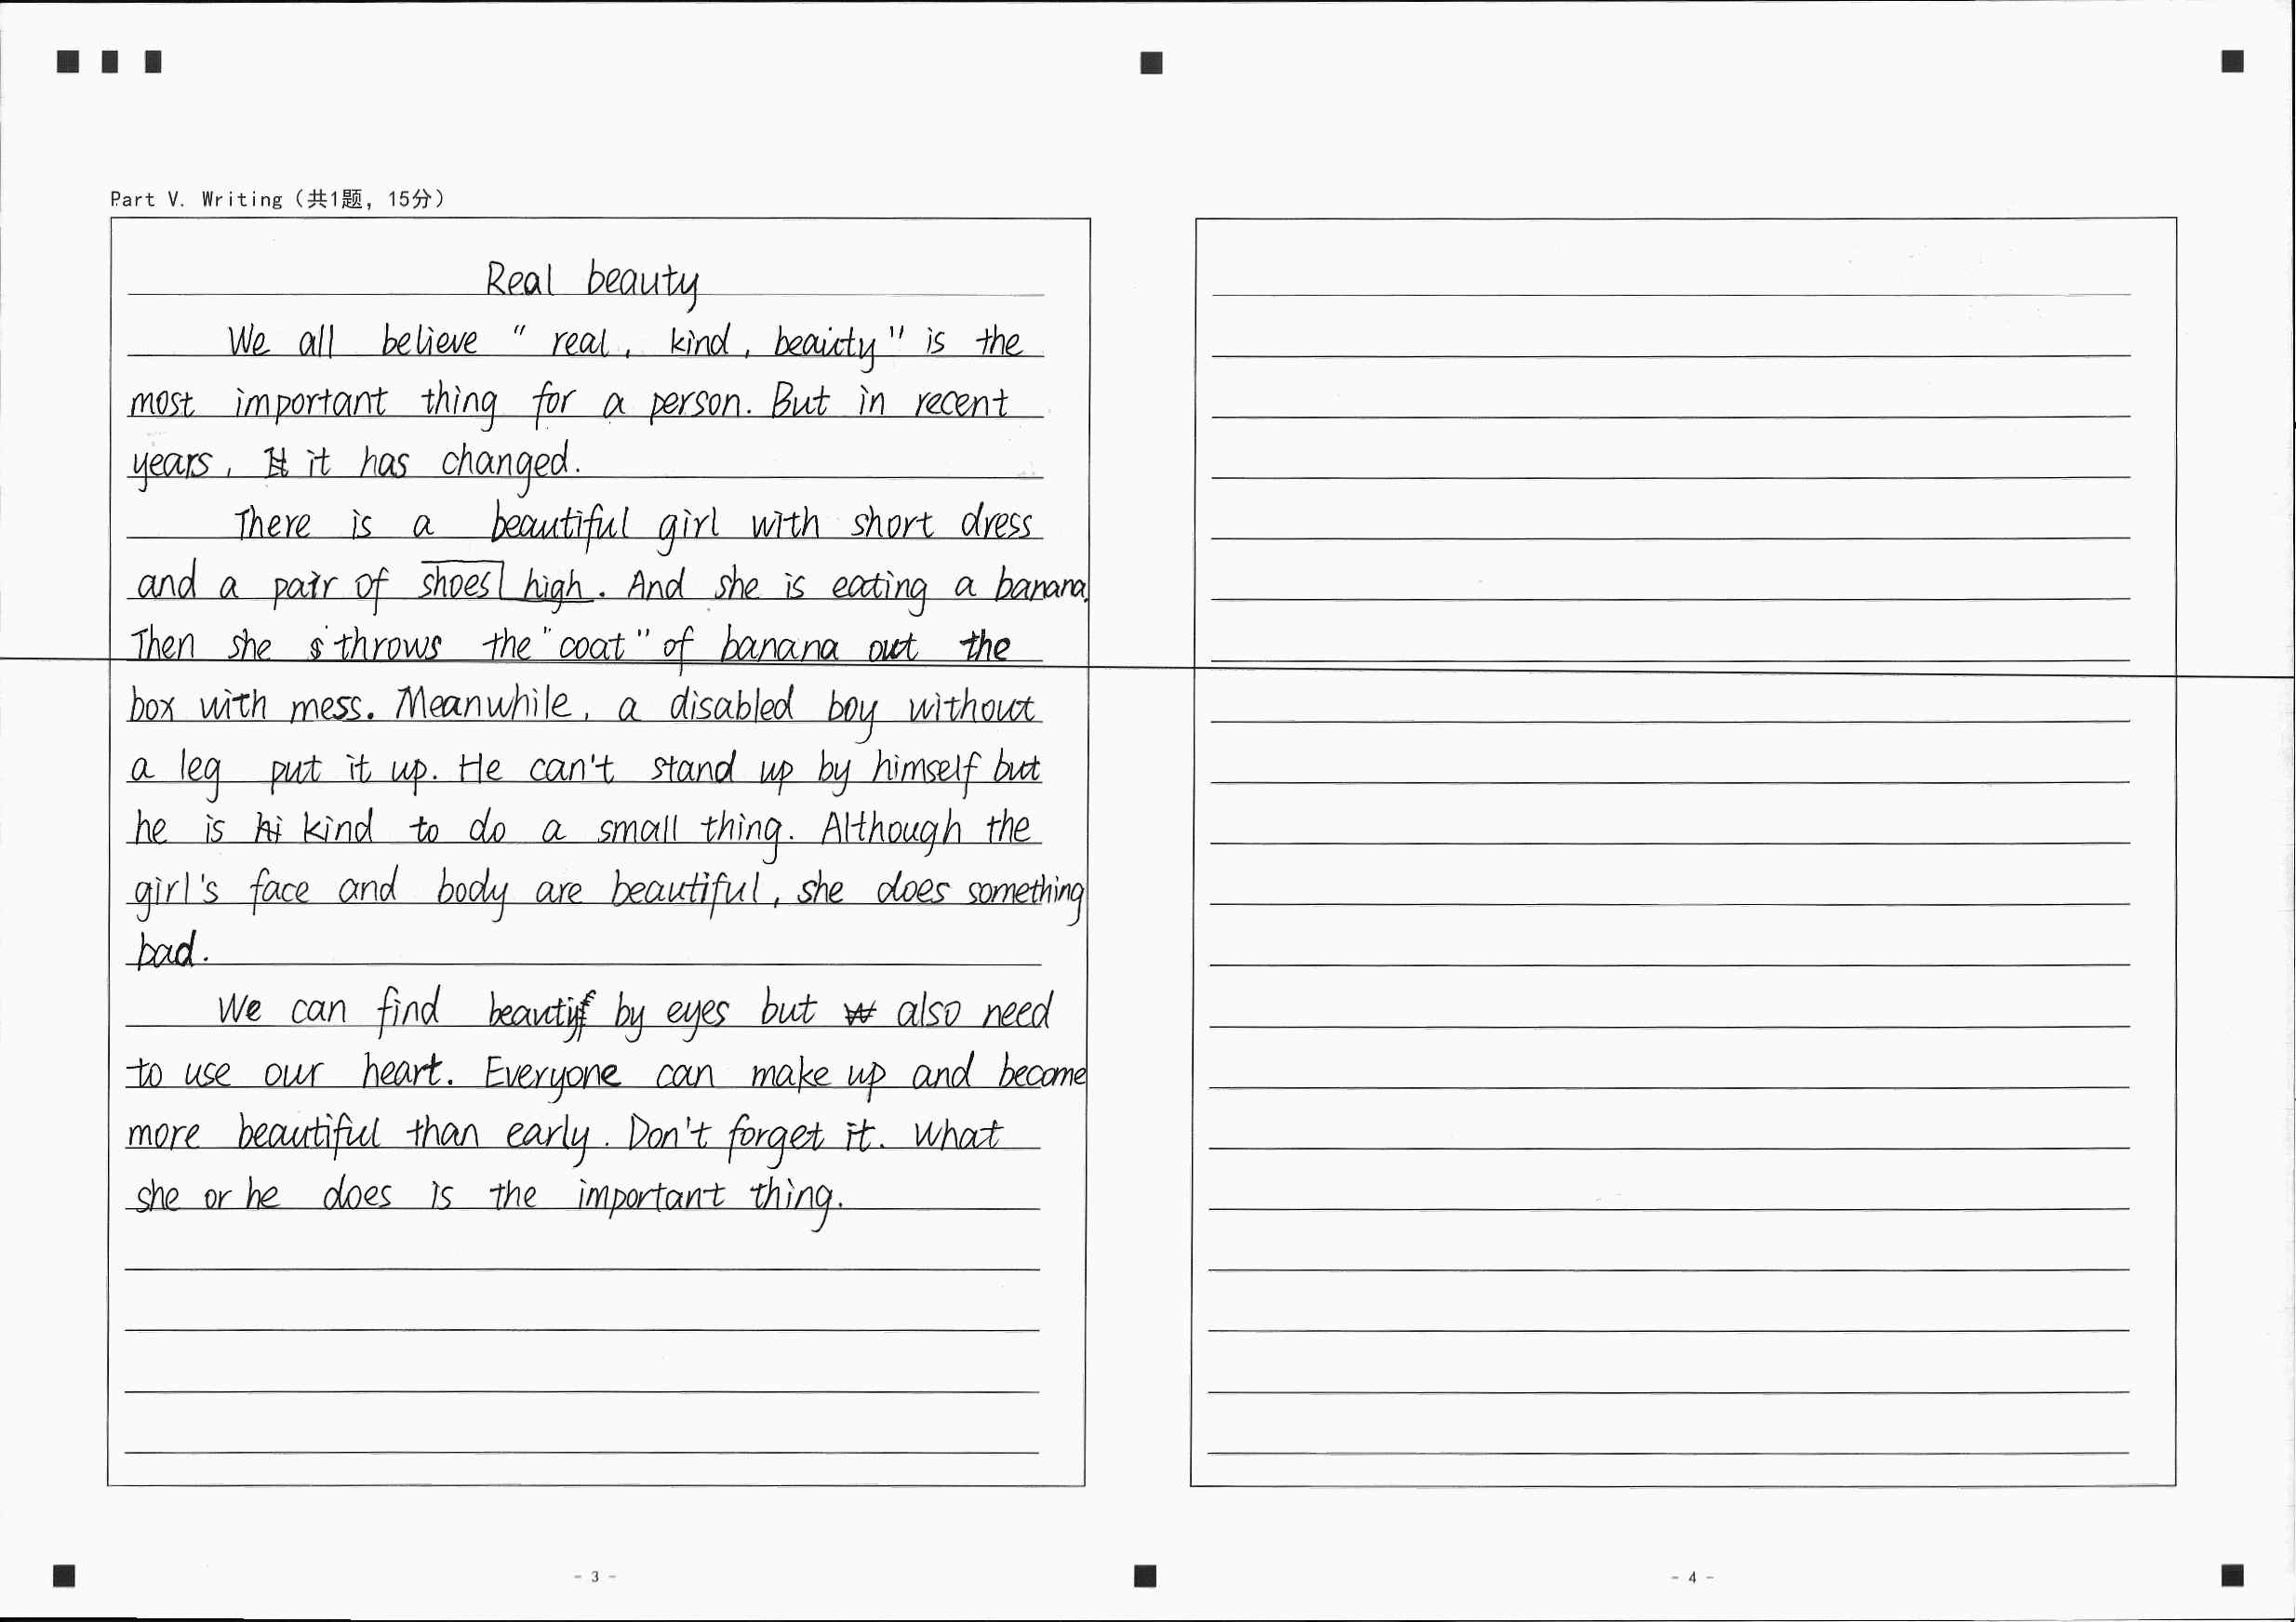 Part V. Writing（共1题，15分）
Real beauty
We all believe " real, kind, beauty" is the
most important thing for a person. But in recent
years, it has changed.
There is a beautiful girl with short dress
and a pair of shoes high. And she is eating a banana.
Then she throws the "coat" of banana out the
box with mess. Meanwhile, a disabled boy without
a leg put it up. He can't stand up by himself but
he is kind to do a small thing. Although the
girl's face and body are beautiful, she does something
bad.
We can find beauty by eyes but also need
to use our heart. Everyone can make up and become
more beautiful than early. Don't forget it. What
she or he does is the important thing.
- 3 -
- 4 -